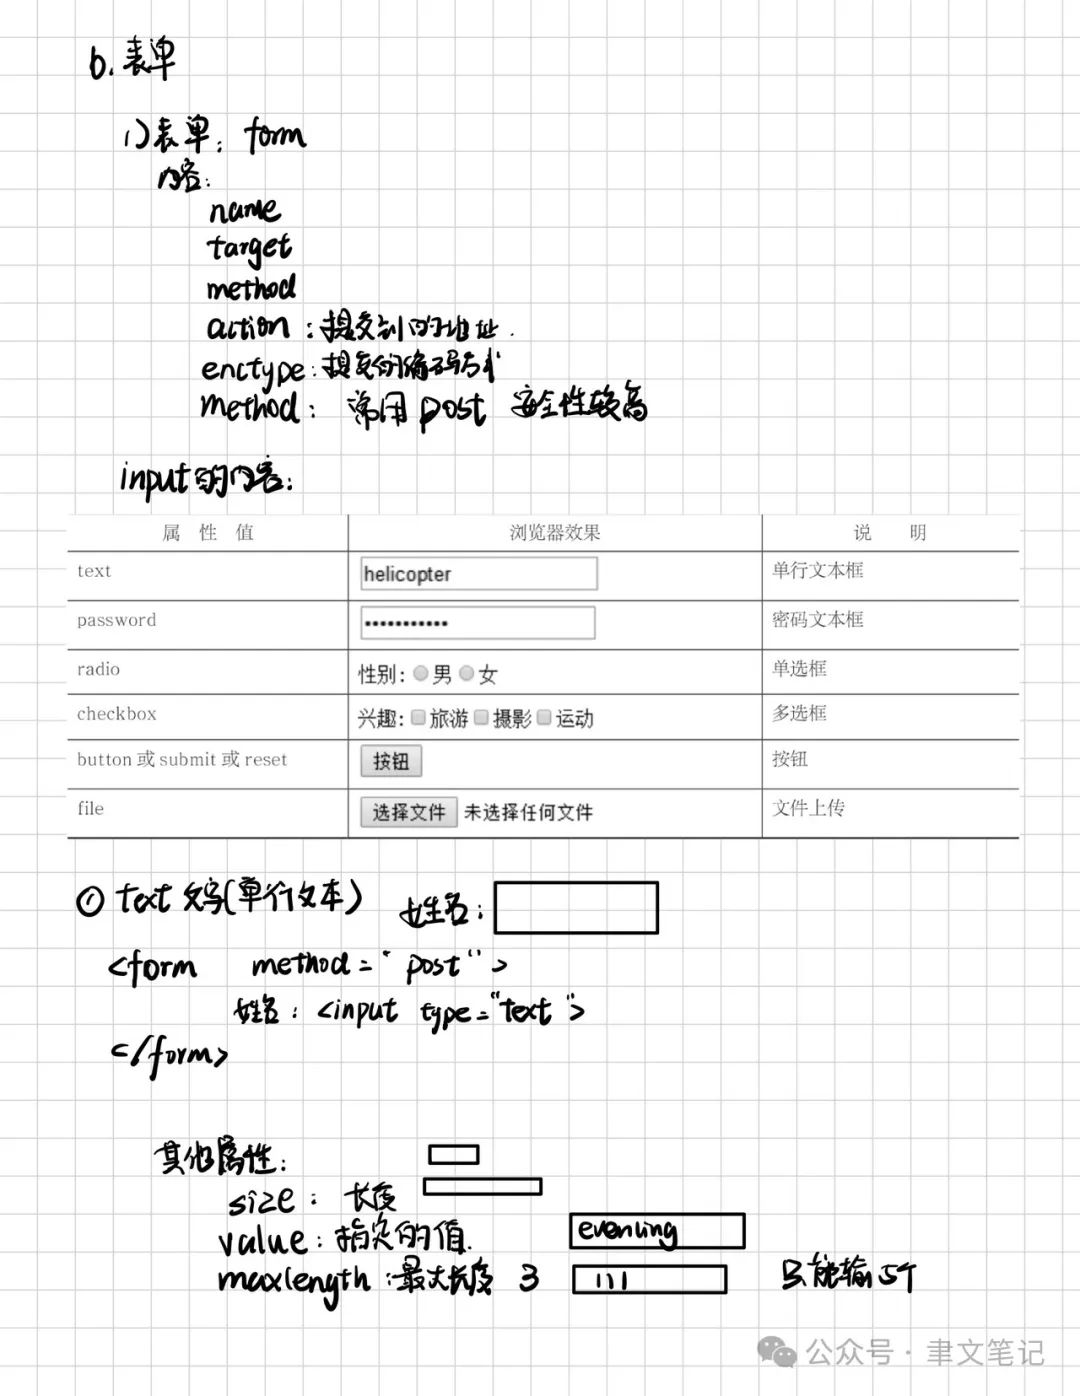 6. 表单
1)表单: form
内容:
name
target
method
action:提交到的地址.
enctype:提交的编码方式
method: 常用 post 安全性较高
input的内容:
属 性 值 浏览器效果 说 明
text helicopter 单行文本框
password ••••••••••• 密码文本框
radio 性别: 男 女 单选框
checkbox 兴趣: 旅游 摄影 运动 多选框
button 或 submit 或 reset 按钮 按钮
file 选择文件 未选择任何文件 文件上传
① text 文字(单行文本) 姓名:
<form method="post">
姓名: <input type="text">
</form>
其他属性:
size: 长度
value:指定的值.
maxlength:最大长度 3 111 只能输
公众号·聿文笔记